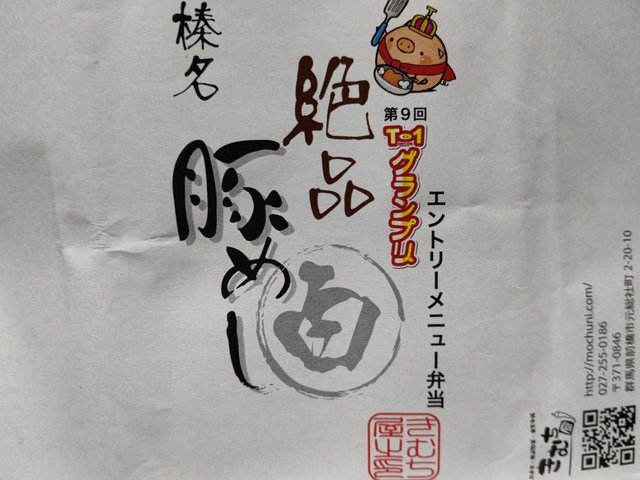 榛名
絶品
豚めし
白
第9回
T-1グランプリ
エントリーメニュー弁当
きむち
屋之印
きむち
http://mochuni.com/
027-255-0186
〒371-0846
群馬県前橋市元総社町 2-20-10